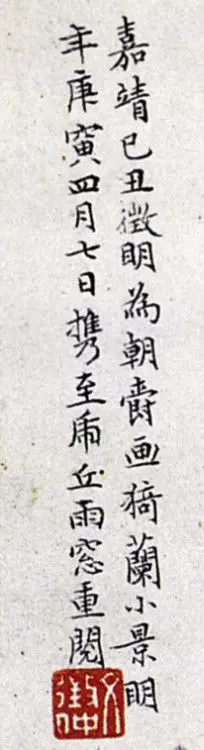 嘉靖己丑徵明為朝爵画猗蘭小景明
年庚寅四月七日携至虎丘雨窓重閱